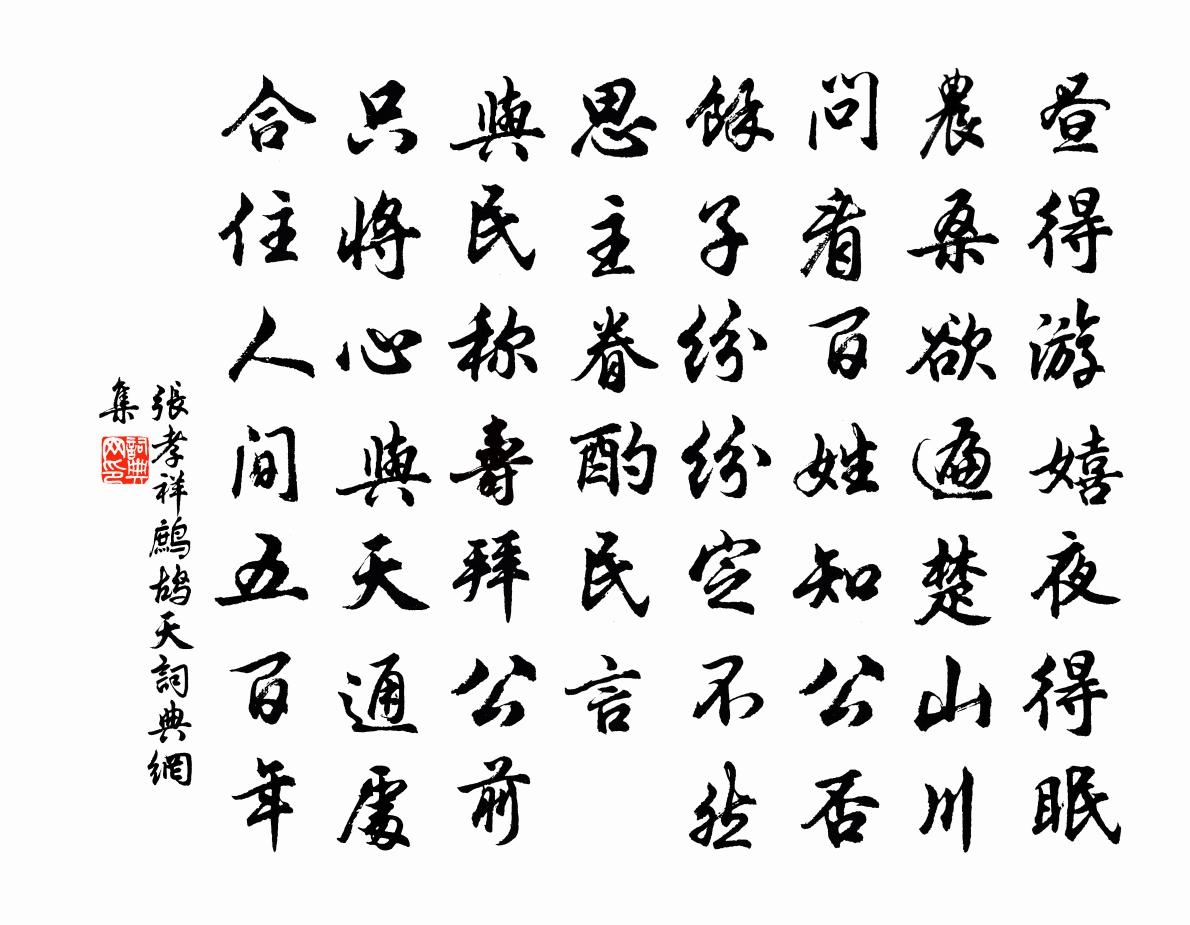 昼得游嬉夜得眠
農桑欲遍楚山川
問看百姓知公否
餘子紛紛定不然
思主眷酌民言
與民称壽拜公前
只將心與天通處
合住人間五百年
張孝祥鷓鴣天詞典網
集
詞典網印